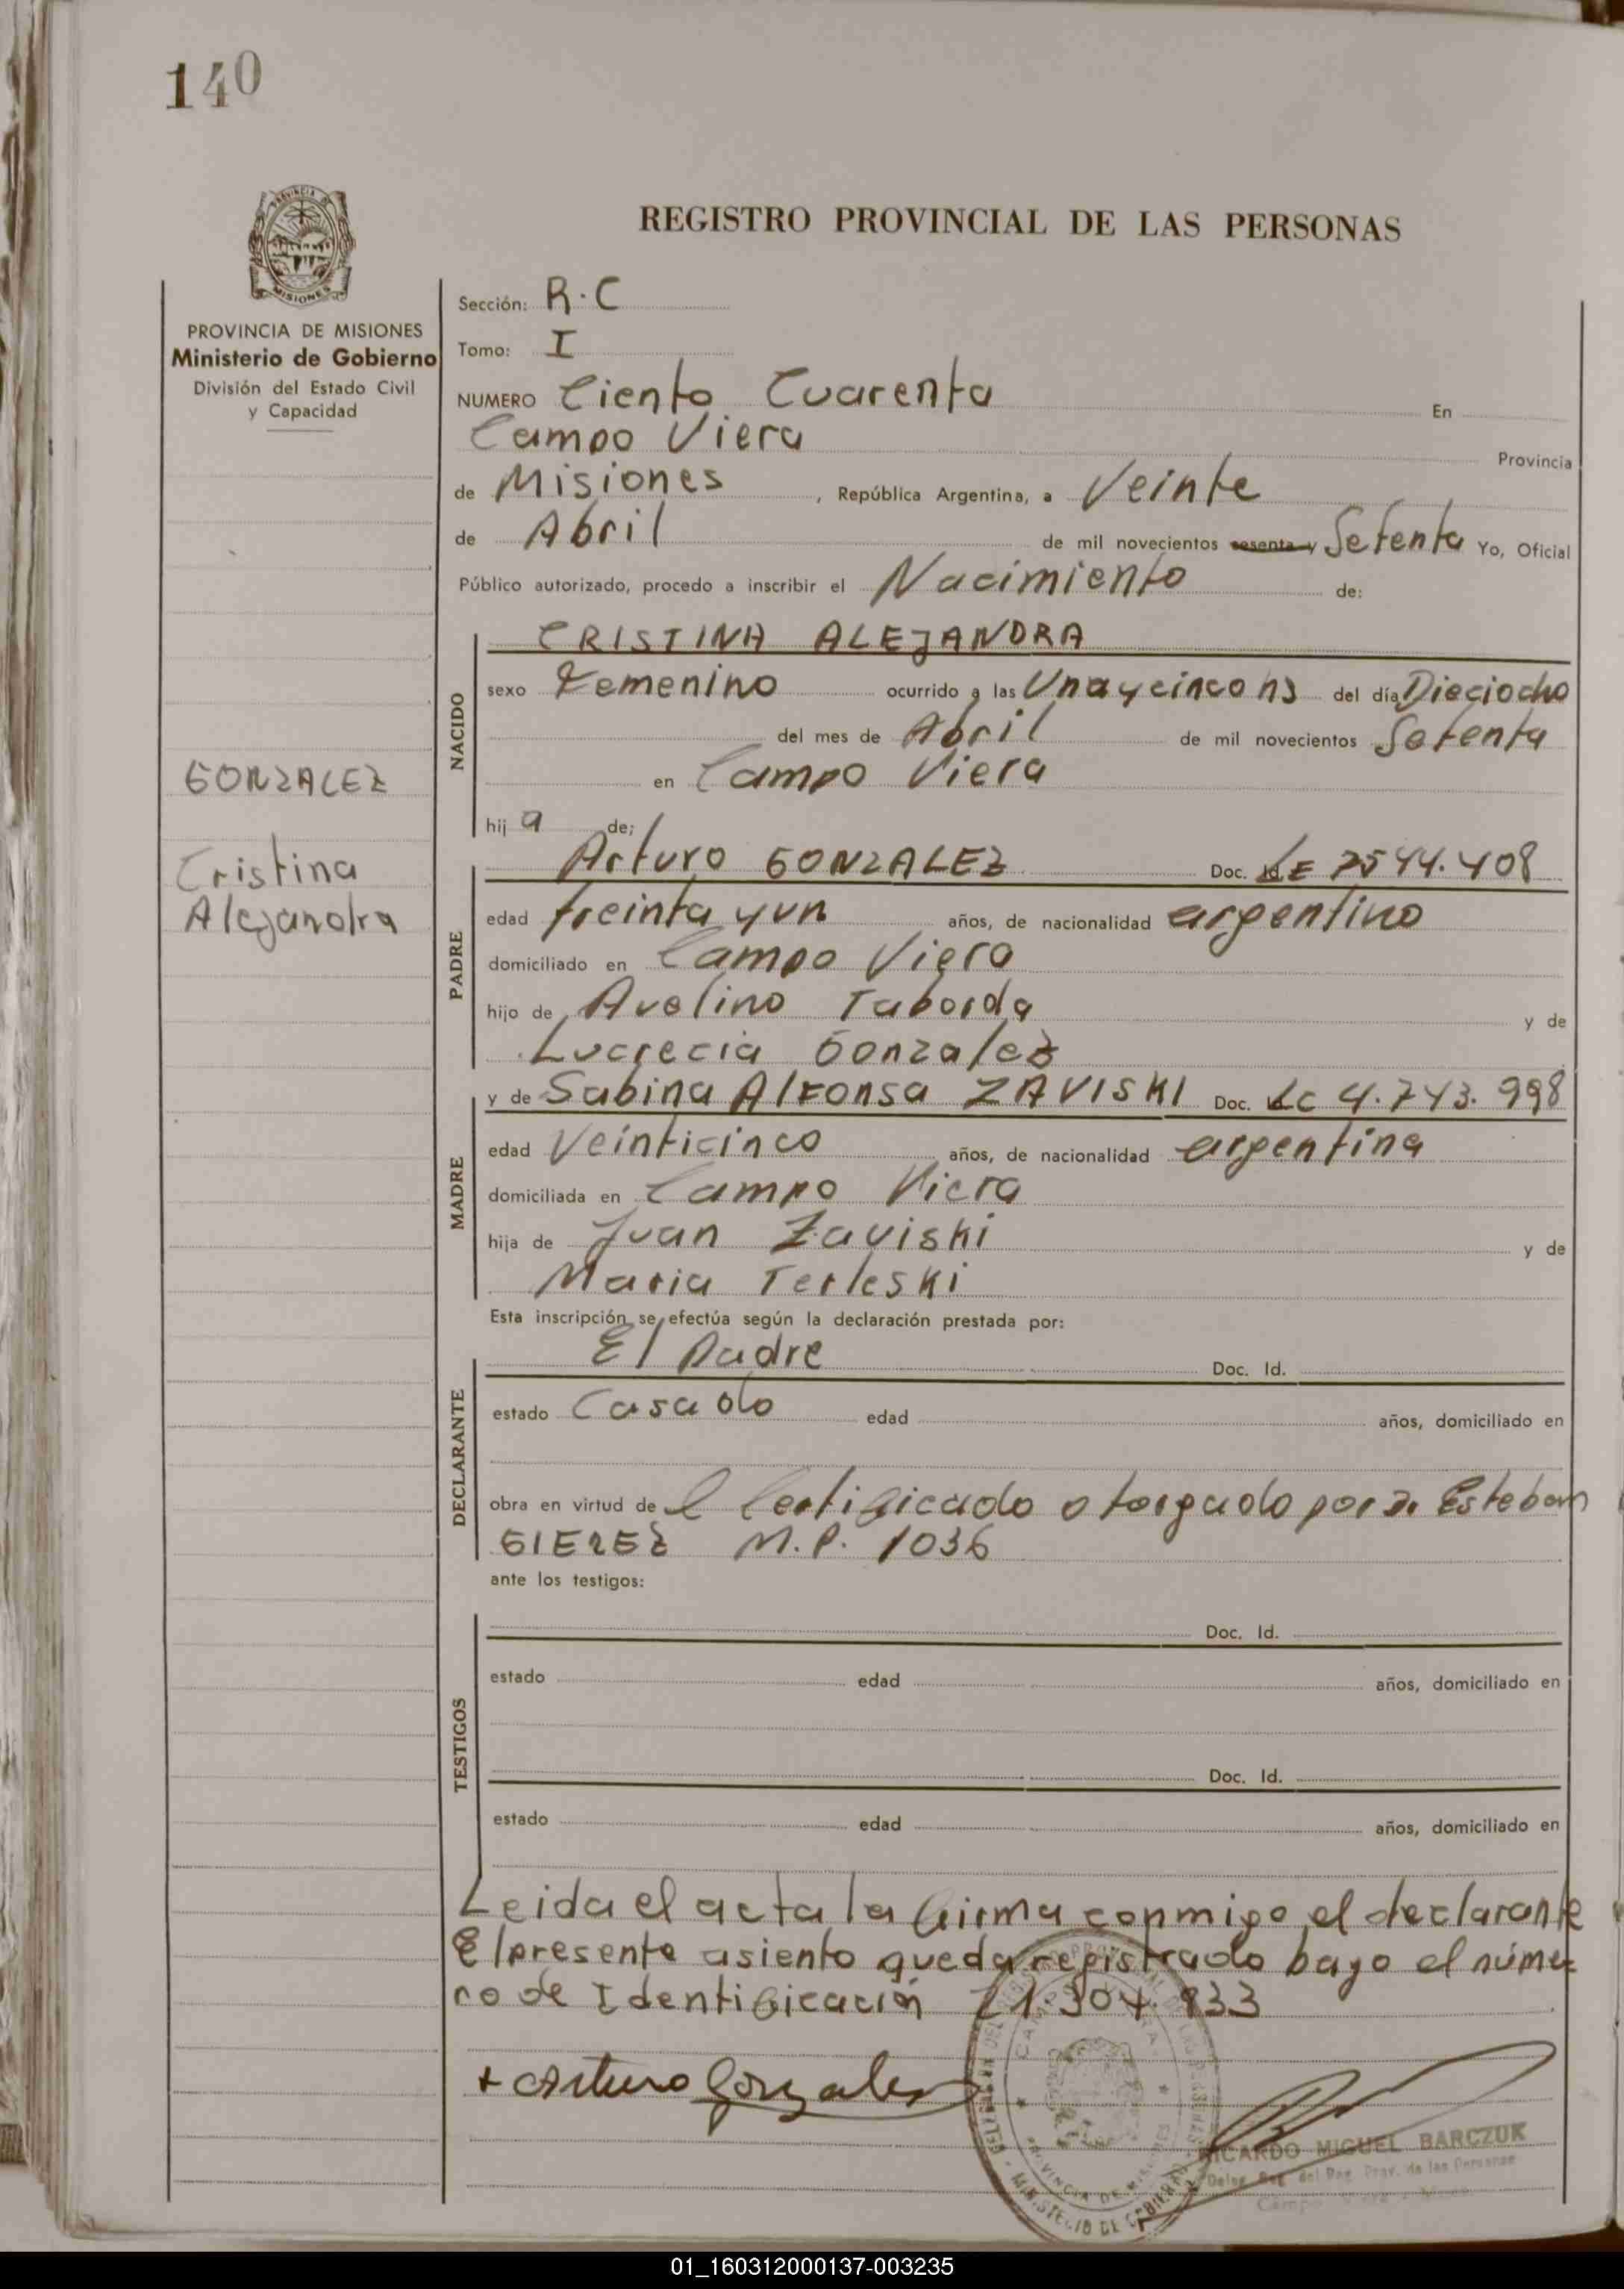 140
PROVINCIA DE MISIONES
MISIONES
PROVINCIA DE MISIONES
Ministerio de Gobierno
División del Estado Civil
y Capacidad
GONZALEZ
Cristina
Alejandra
REGISTRO PROVINCIAL DE LAS PERSONAS
Sección: R.C
Tomo: I
NUMERO Ciento Cuarenta En
Campo Viera Provincia
de Misiones, República Argentina, a Veinte
de Abril de mil novecientos sesenta y Setenta Yo, Oficial
Público autorizado, procedo a inscribir el Nacimiento de:
NACIDO
CRISTINA ALEJANDRA
sexo Femenino ocurrido a las Una y cinco hs del día Dieciocho
del mes de Abril de mil novecientos Setenta
en Campo Viera
hija de:
PADRE
Arturo GONZALEZ Doc. Id. LE 7544.408
edad treinta y un años, de nacionalidad argentino
domiciliado en Campo Viera
hijo de Avelino Taborda y de
Lucrecia Gonzalez
MADRE
y de Sabina Alfonsa ZAVISKI Doc. Id. LC 4.743.998
edad Veinticinco años, de nacionalidad argentina
domiciliada en Campo Viera
hija de Juan Zaviski y de
Maria Terleski
Esta inscripción se efectúa según la declaración prestada por:
DECLARANTE
El Padre Doc. Id.
estado Casado edad años, domiciliado en
obra en virtud del Certificado otorgado por Dr Esteban
GIEREZ M.P. 1036
ante los testigos:
TESTIGOS
Doc. Id.
estado edad años, domiciliado en
Doc. Id.
estado edad años, domiciliado en
Leida el acta la firma conmigo el declarante
El presente asiento queda registrado bajo el núme
ro de Identificación 21.304.933
+ Arturo Gonzalez
CAMPO VIERA
PROVINCIA DE MISIONES
MINISTERIO DE GOBIERNO
RICARDO MIGUEL BARCZUK
Deleg. del Reg. Prov. de las Personas
Campo Viera
01_160312000137-003235